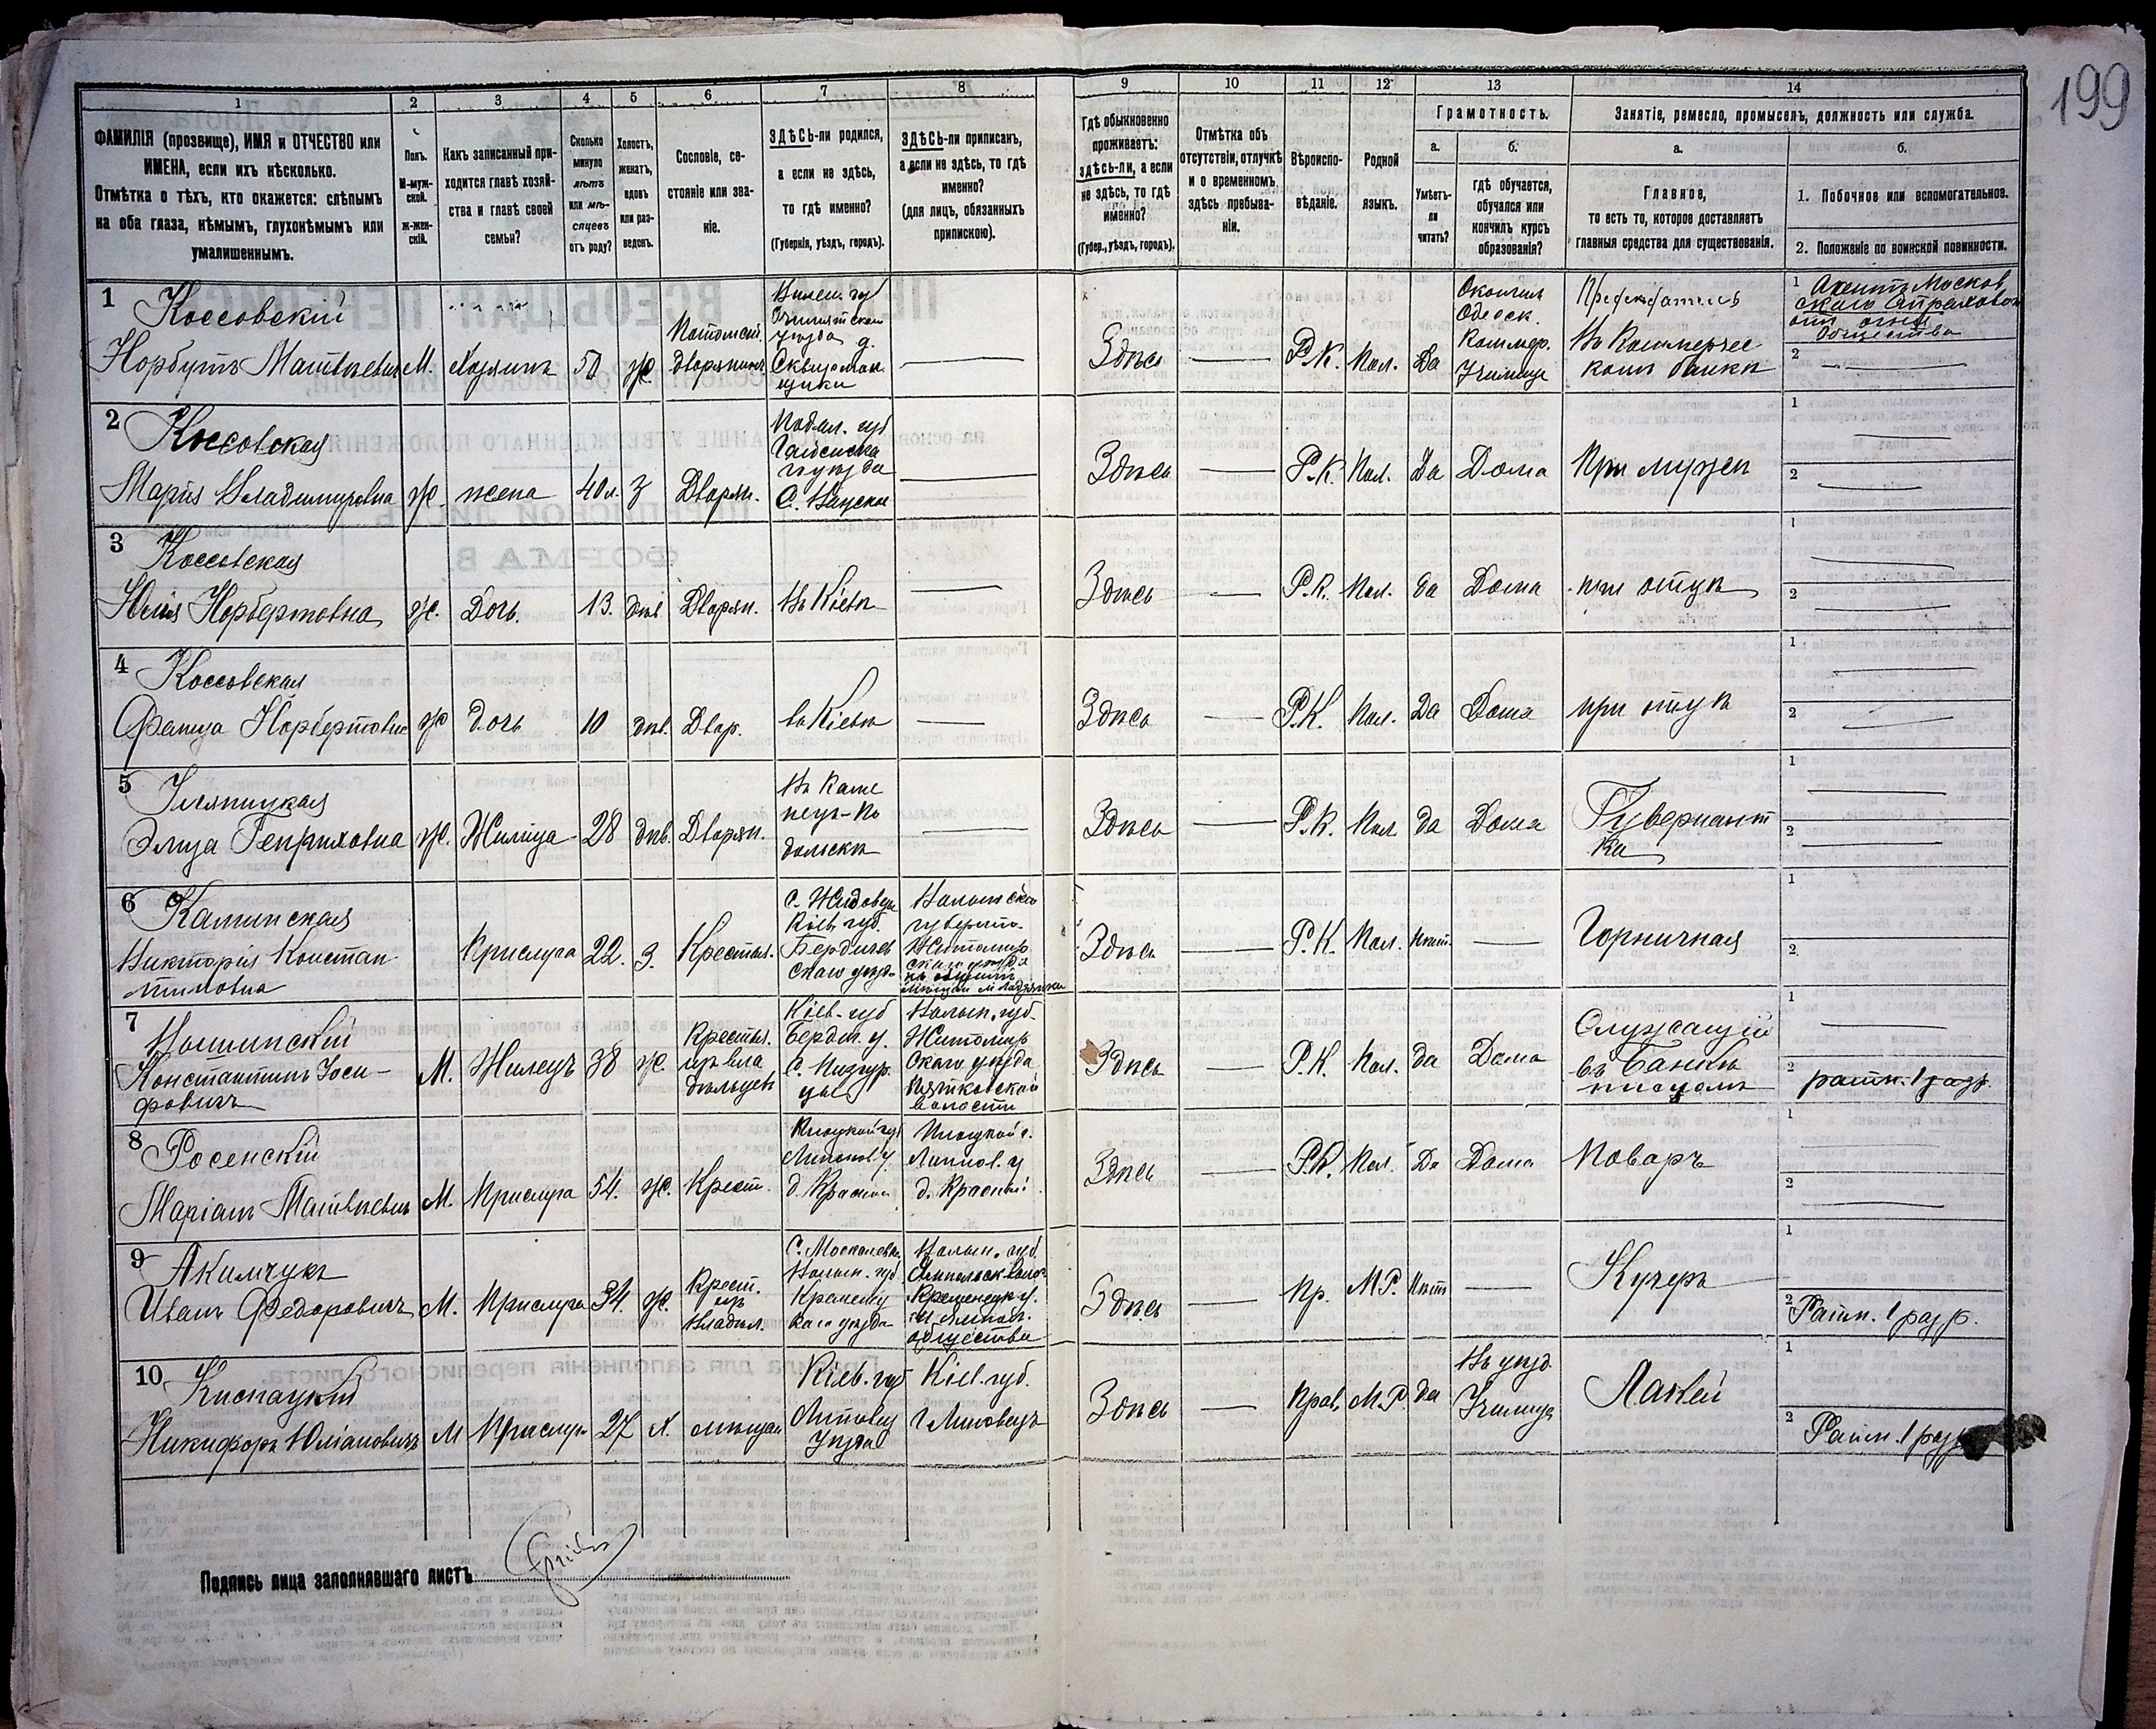 199
1 2 3 4 5 6 7 8 9 10 11 12 13 14
ФАМИЛІЯ (прозвище), ИМЯ и ОТЧЕСТВО или
ИМЕНА, если ихъ нѣсколько.
Отмѣтка о тѣхъ, кто окажется: слѣпымъ
на оба глаза, нѣмымъ, глухонѣмымъ или
умалишеннымъ.
Полъ.
М-муж-
ской.
Ж-жен-
скій.
Какъ записанный при-
ходится главѣ хозяй-
ства и главѣ своей
семьи?
Сколько
минуло
лѣтъ
или мѣ-
сяцевъ
отъ роду?
Холостъ,
женатъ,
вдовъ
или раз-
веденъ.
Сословіе, со-
стояніе или зва-
ніе.
ЗДѢСЬ-ли родился,
а если не здѣсь,
то гдѣ именно?
(Губернія, уѣздъ, городъ).
ЗДѢСЬ-ли приписанъ,
а если не здѣсь, то гдѣ
именно?
(для лицъ, обязанныхъ
припискою).
Гдѣ обыкновенно
проживаетъ:
здѣсь-ли, а если
не здѣсь, то гдѣ
именно?
(Губер., уѣздъ, городъ).
Отмѣтка объ
отсутствіи, отлучкѣ
и о временномъ
здѣсь пребыва-
ніи.
Вѣроиспо-
вѣданіе.
Родной
языкъ.
Грамотность.
а.
Умѣетъ-
ли
читать?
б.
гдѣ обучается,
обучался или
кончилъ курсъ
образованія?
Занятіе, ремесло, промыселъ, должность или служба.
а.
Главное,
то есть то, которое доставляетъ
главныя средства для существованія.
б.
1. Побочное или вспомогательное.
2. Положеніе по воинской повинности.
1
Коссовскій
Норбутъ Матвѣевичъ
М.
Хозяинъ
50
ж.
Потомст.
дворянинъ
уѣзда д.
Здѣсь
Р.К.
Пол.
Да
Окончилъ
Одесск.
Коммер.
Училище
Въ Коммерчес
комъ банкѣ
1 Агентъ Москов
скаго Страхового
отъ огня
Общества
2
2
Коссовская
Марія Владимировна
ж.
жена
40 л.
з
Дворян.
Подол. губ
Здѣсь
Р.К.
Пол.
Да
Дома
При мужѣ
1
2
3
Коссовская
Юлія Норбертовна
ж.
Дочь.
13.
дѣв
Дворян.
Въ Кіевѣ
Здѣсь
Р.К.
Пол.
да
Дома
при отцѣ
1
2
4
Коссовская
Норбертовна
ж
дочь
10
дѣв.
Двор.
въ Кіевѣ
Здѣсь
Р.К.
Пол.
Да
Дома
при отцѣ
1
2
5
Элиза Генриховна
ж.
Жилица
28
дѣв.
Дворян.
Въ Каме
нецъ-По
дольскѣ
Здѣсь
Р.К.
Пол
да
Дома
Гувернант
ка
1
2
6
Калинская
Викторія Констан
тиновна
Прислуга
22.
з.
Крестьян.
Кіев. губ.
Бердичев
скаго уѣзд.
Волынской
губерніи
Житомир
скаго уѣзда
Здѣсь
Р.К.
Пол.
Нѣтъ
Горничная
1
2
7
Константинъ Іоси-
фовичъ
М.
Жилецъ
38
ж.
Крестьян.
изъ вла
дѣльцевъ
Кіев. губ
Бердич. у.
Волын. губ.
Житомир
скаго уѣзда
волости
Здѣсь
Р.К.
Пол.
да
Дома
Служащій
въ Банкѣ
1
2 ратн. 1 разр.
8
Росенскій
Маріанъ Матвѣевичъ
М.
Прислуга
54.
ж.
Крест.
Плоцкой губ
Липнов. у.
Плоцкой г.
Липнов. у
Здѣсь
Р.К.
Пол.
Да
Дома
Поваръ
1
2
9
Акимчукъ
Иванъ Федоровичъ
М.
Прислуга
34.
ж.
Крест.
изъ
владѣл.
Волын. губ
Кременец
каго уѣзда
Волын. губ.
Кременецк у.
общества
Здѣсь
Пр.
М.Р.
Нѣтъ
Кучеръ
1
2 Ратн. 1 разр.
10
Никифоръ Юліановичъ
М
Прислуга
27
х.
мѣщан
Кіев. губ
Липовец
Уѣзда
Кіев. губ.
г Липовецъ
Здѣсь
Прав.
М.Р.
да
Въ уѣзд.
Училищѣ
Лакей
1
2 Ратн. 1 разр
Подпись лица заполнявшаго листъ